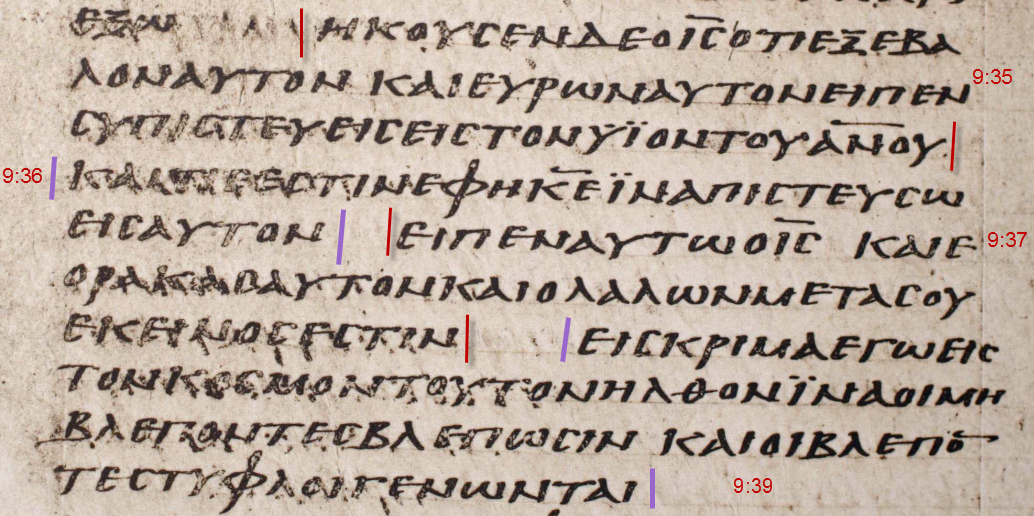 ΕΞΩ ΗΚΟΥϹΕΝΔΕΟΙ̅Ϲ̅ΟΤΙΕΞΕΒΑ
ΛΟΝΑΥΤΟΝ ΚΑΙΕΥΡΩΝΑΥΤΟΝΕΙΠΕΝ 9:35
ϹΥΠΙϹΤΕΥΕΙϹΕΙϹΤΟΝΥΪΟΝΤΟΥΑ̅Ν̅ΟΥ
9:36 ΚΑΙΤΙϹΕϹΤΙΝΕΦΗΚ̅Ε̅ΪΝΑΠΙϹΤΕΥϹΩ
ΕΙϹΑΥΤΟΝ ΕΙΠΕΝΑΥΤΩΟΙ̅Ϲ̅ ΚΑΙΕ 9:37
ΟΡΑΚΑϹΑΥΤΟΝΚΑΙΟΛΑΛΩΝΜΕΤΑϹΟΥ
ΕΚΕΙΝΟϹΕϹΤΙΝ ΕΙϹΚΡΙΜΑΕΓΩΕΙϹ
ΤΟΝΚΟϹΜΟΝΤΟΥΤΟΝΗΛΘΟΝΪΝΑΟΙΜΗ
ΒΛΕΠΟΝΤΕϹΒΛΕΠΩϹΙΝ ΚΑΙΟΙΒΛΕΠΟ̅
ΤΕϹΤΥΦΛΟΙΓΕΝΩΝΤΑΙ 9:39